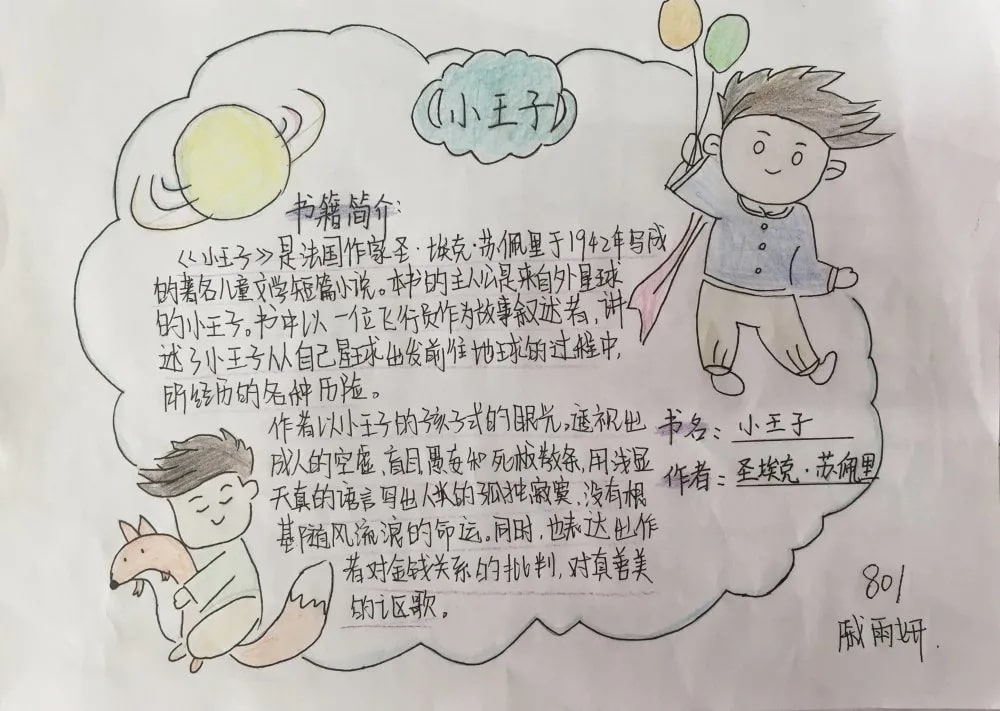 《小王子》
书籍简介：
《小王子》是法国作家圣·埃克·苏佩里于1942年写成
的著名儿童文学短篇小说。本书的主人公是来自外星球
的小王子。书中以一位飞行员作为故事叙述者，讲
述了小王子从自己星球出发前往地球的过程中，
所经历的各种历险。
作者以小王子的孩子式的眼光。透视出
成人的空虚，盲目愚妄和死板教条，用浅显
天真的语言写出人类的孤独寂寞，没有根
基随风流浪的命运。同时，也表达出作
者对金钱关系的批判，对真善美
的讴歌。
书名：小王子
作者：圣埃克·苏佩里
801
戚雨妍